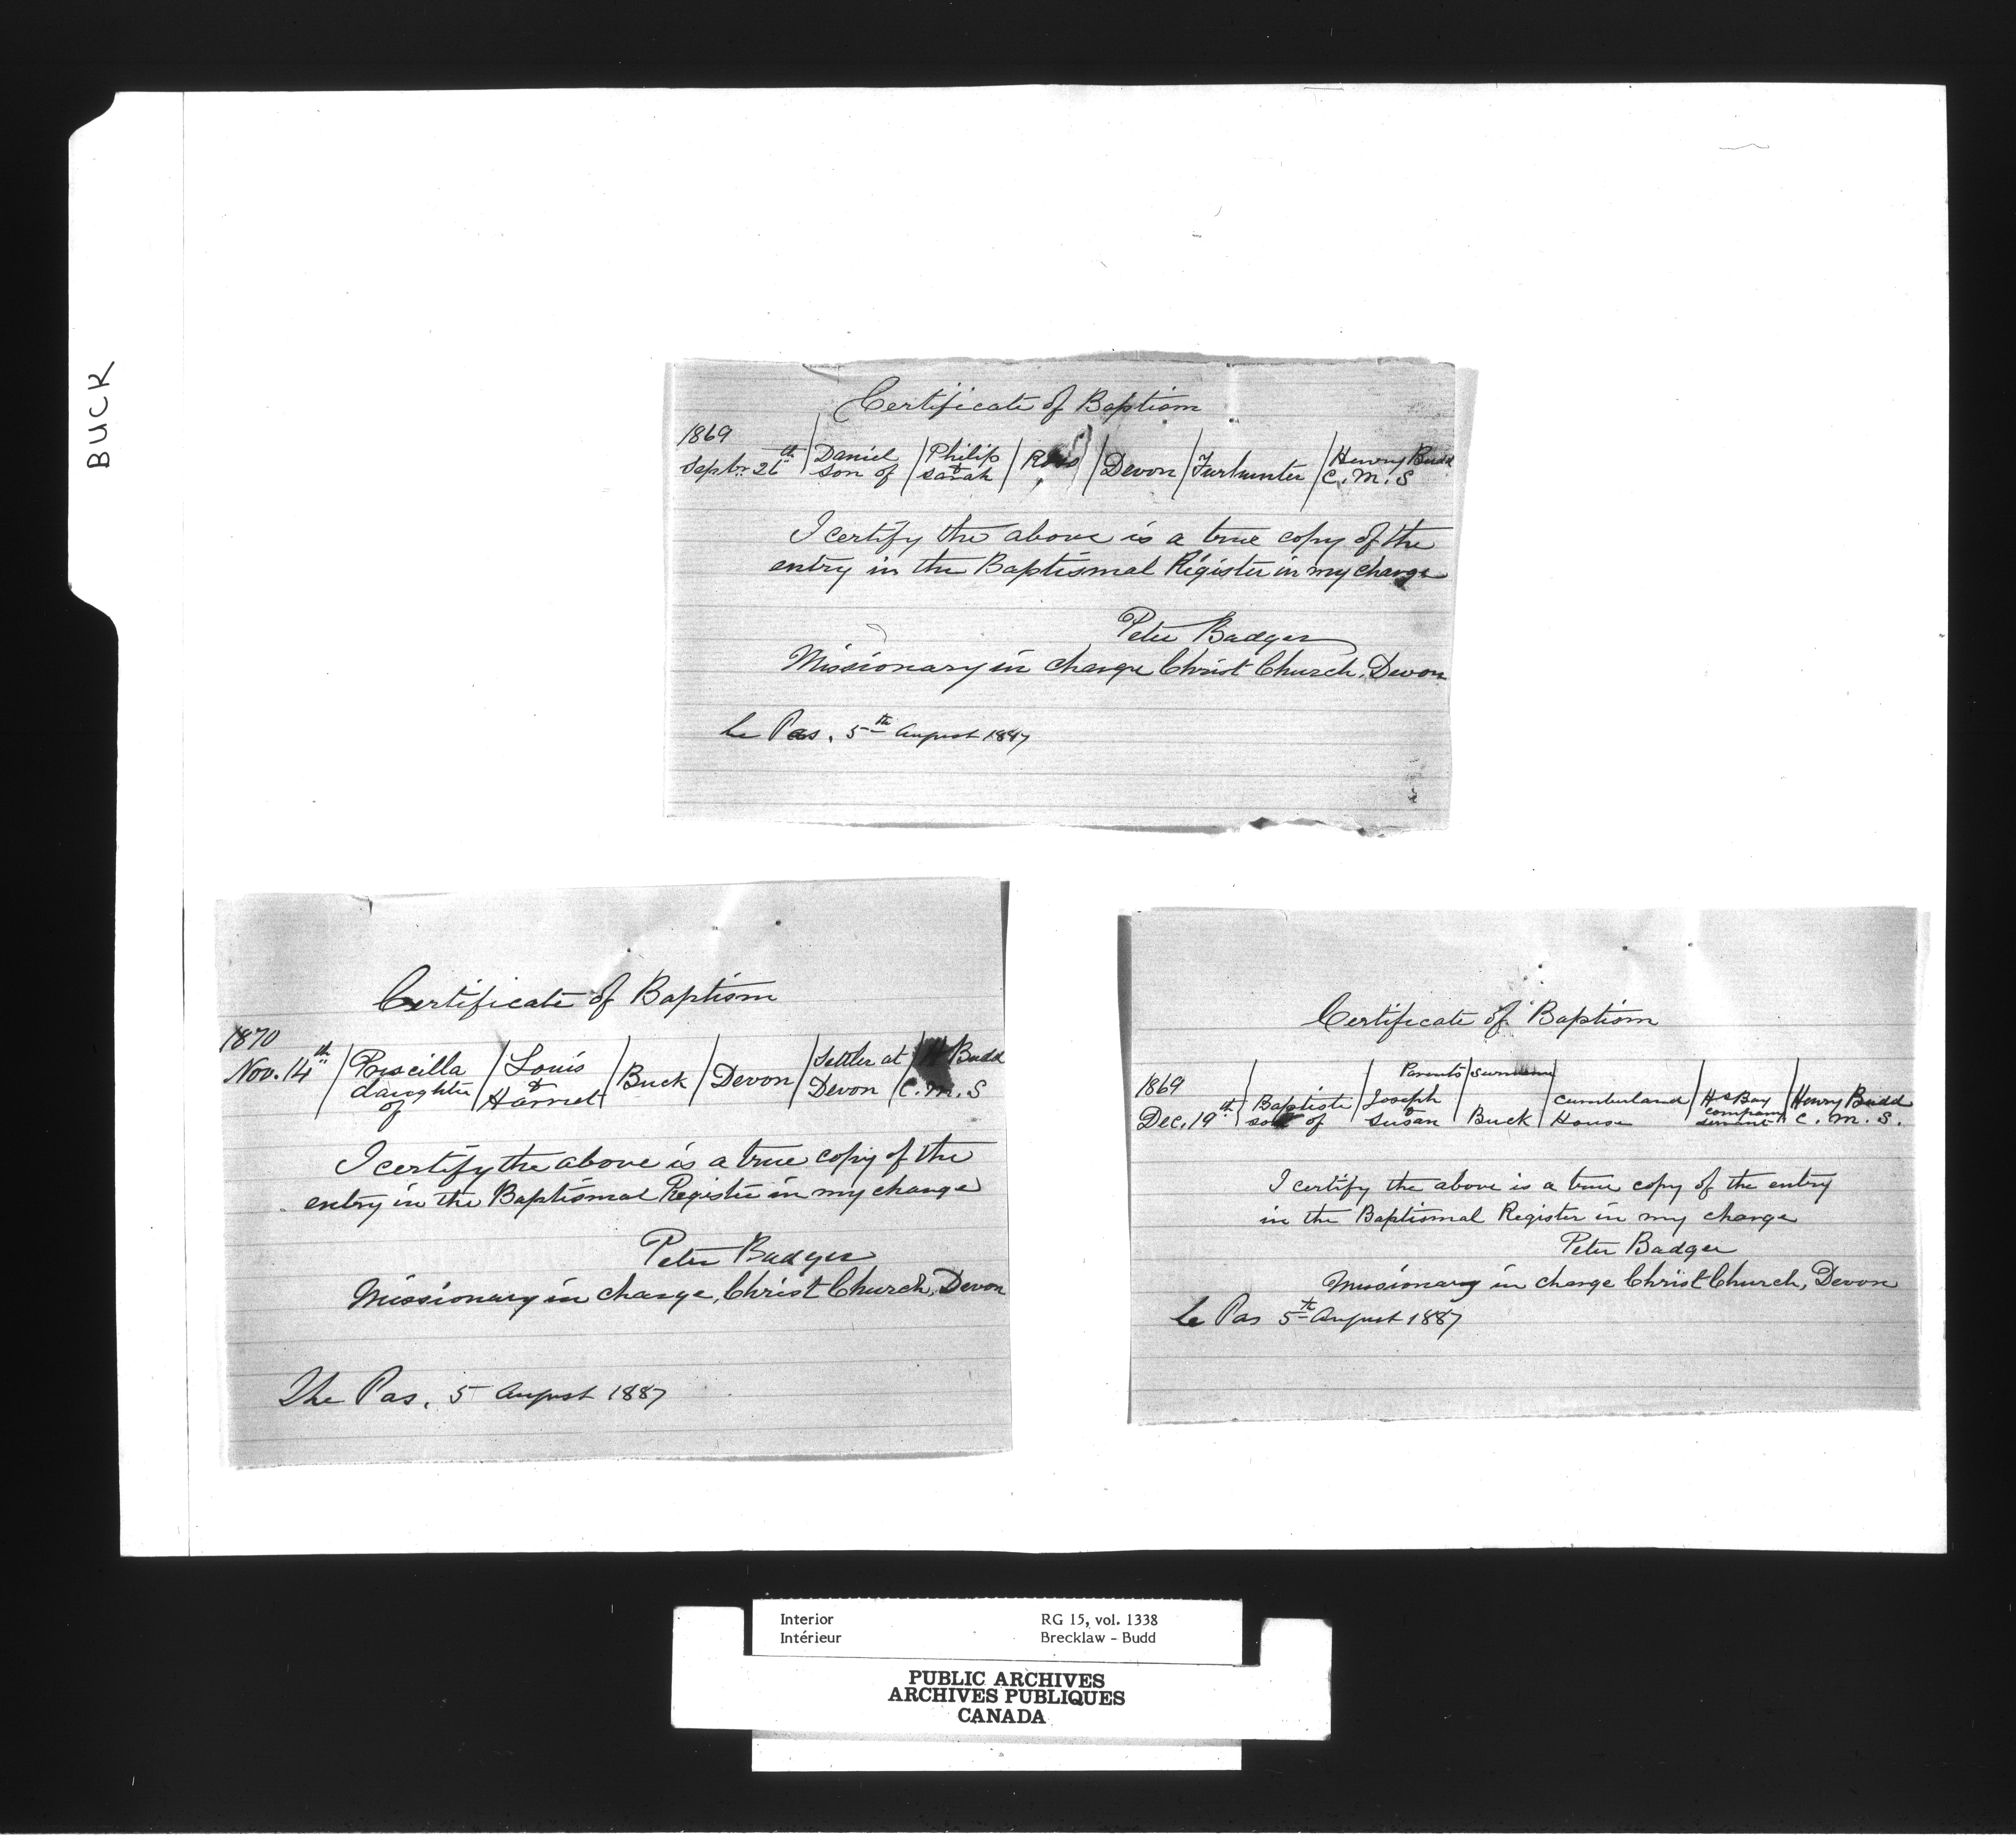 BUCK
Certificate of Baptism
1869
Septbr. 26th / Daniel son of / Philip & Sarah / Ross / Devon / Furhunter / Henry Budd C. M. S
I certify the above is a true copy of the
entry in the Baptismal Register in my charge
Peter Badger
Missionary in charge Christ Church, Devon
Le Pas, 5th August 1887
Certificate of Baptism
1870
Nov. 14th / Priscilla daughter of / Louis & Harriet / Buck / Devon / Settler at Devon / H Budd C. M. S
I certify the above is a true copy of the
entry in the Baptismal Register in my charge
Peter Badger
Missionary in charge, Christ Church, Devon
The Pas, 5 August 1887
Certificate of Baptism
Parents / surname
1869
Dec. 19th / Baptiste son of / Joseph & Susan / Buck / Cumberland House / Hs Bay company servant / Henry Budd C. M. S.
I certify the above is a true copy of the entry
in the Baptismal Register in my charge
Peter Badger
Missionary in charge Christ Church, Devon
Le Pas 5th August 1887
Interior RG 15, vol. 1338
Intérieur Brecklaw - Budd
PUBLIC ARCHIVES
ARCHIVES PUBLIQUES
CANADA